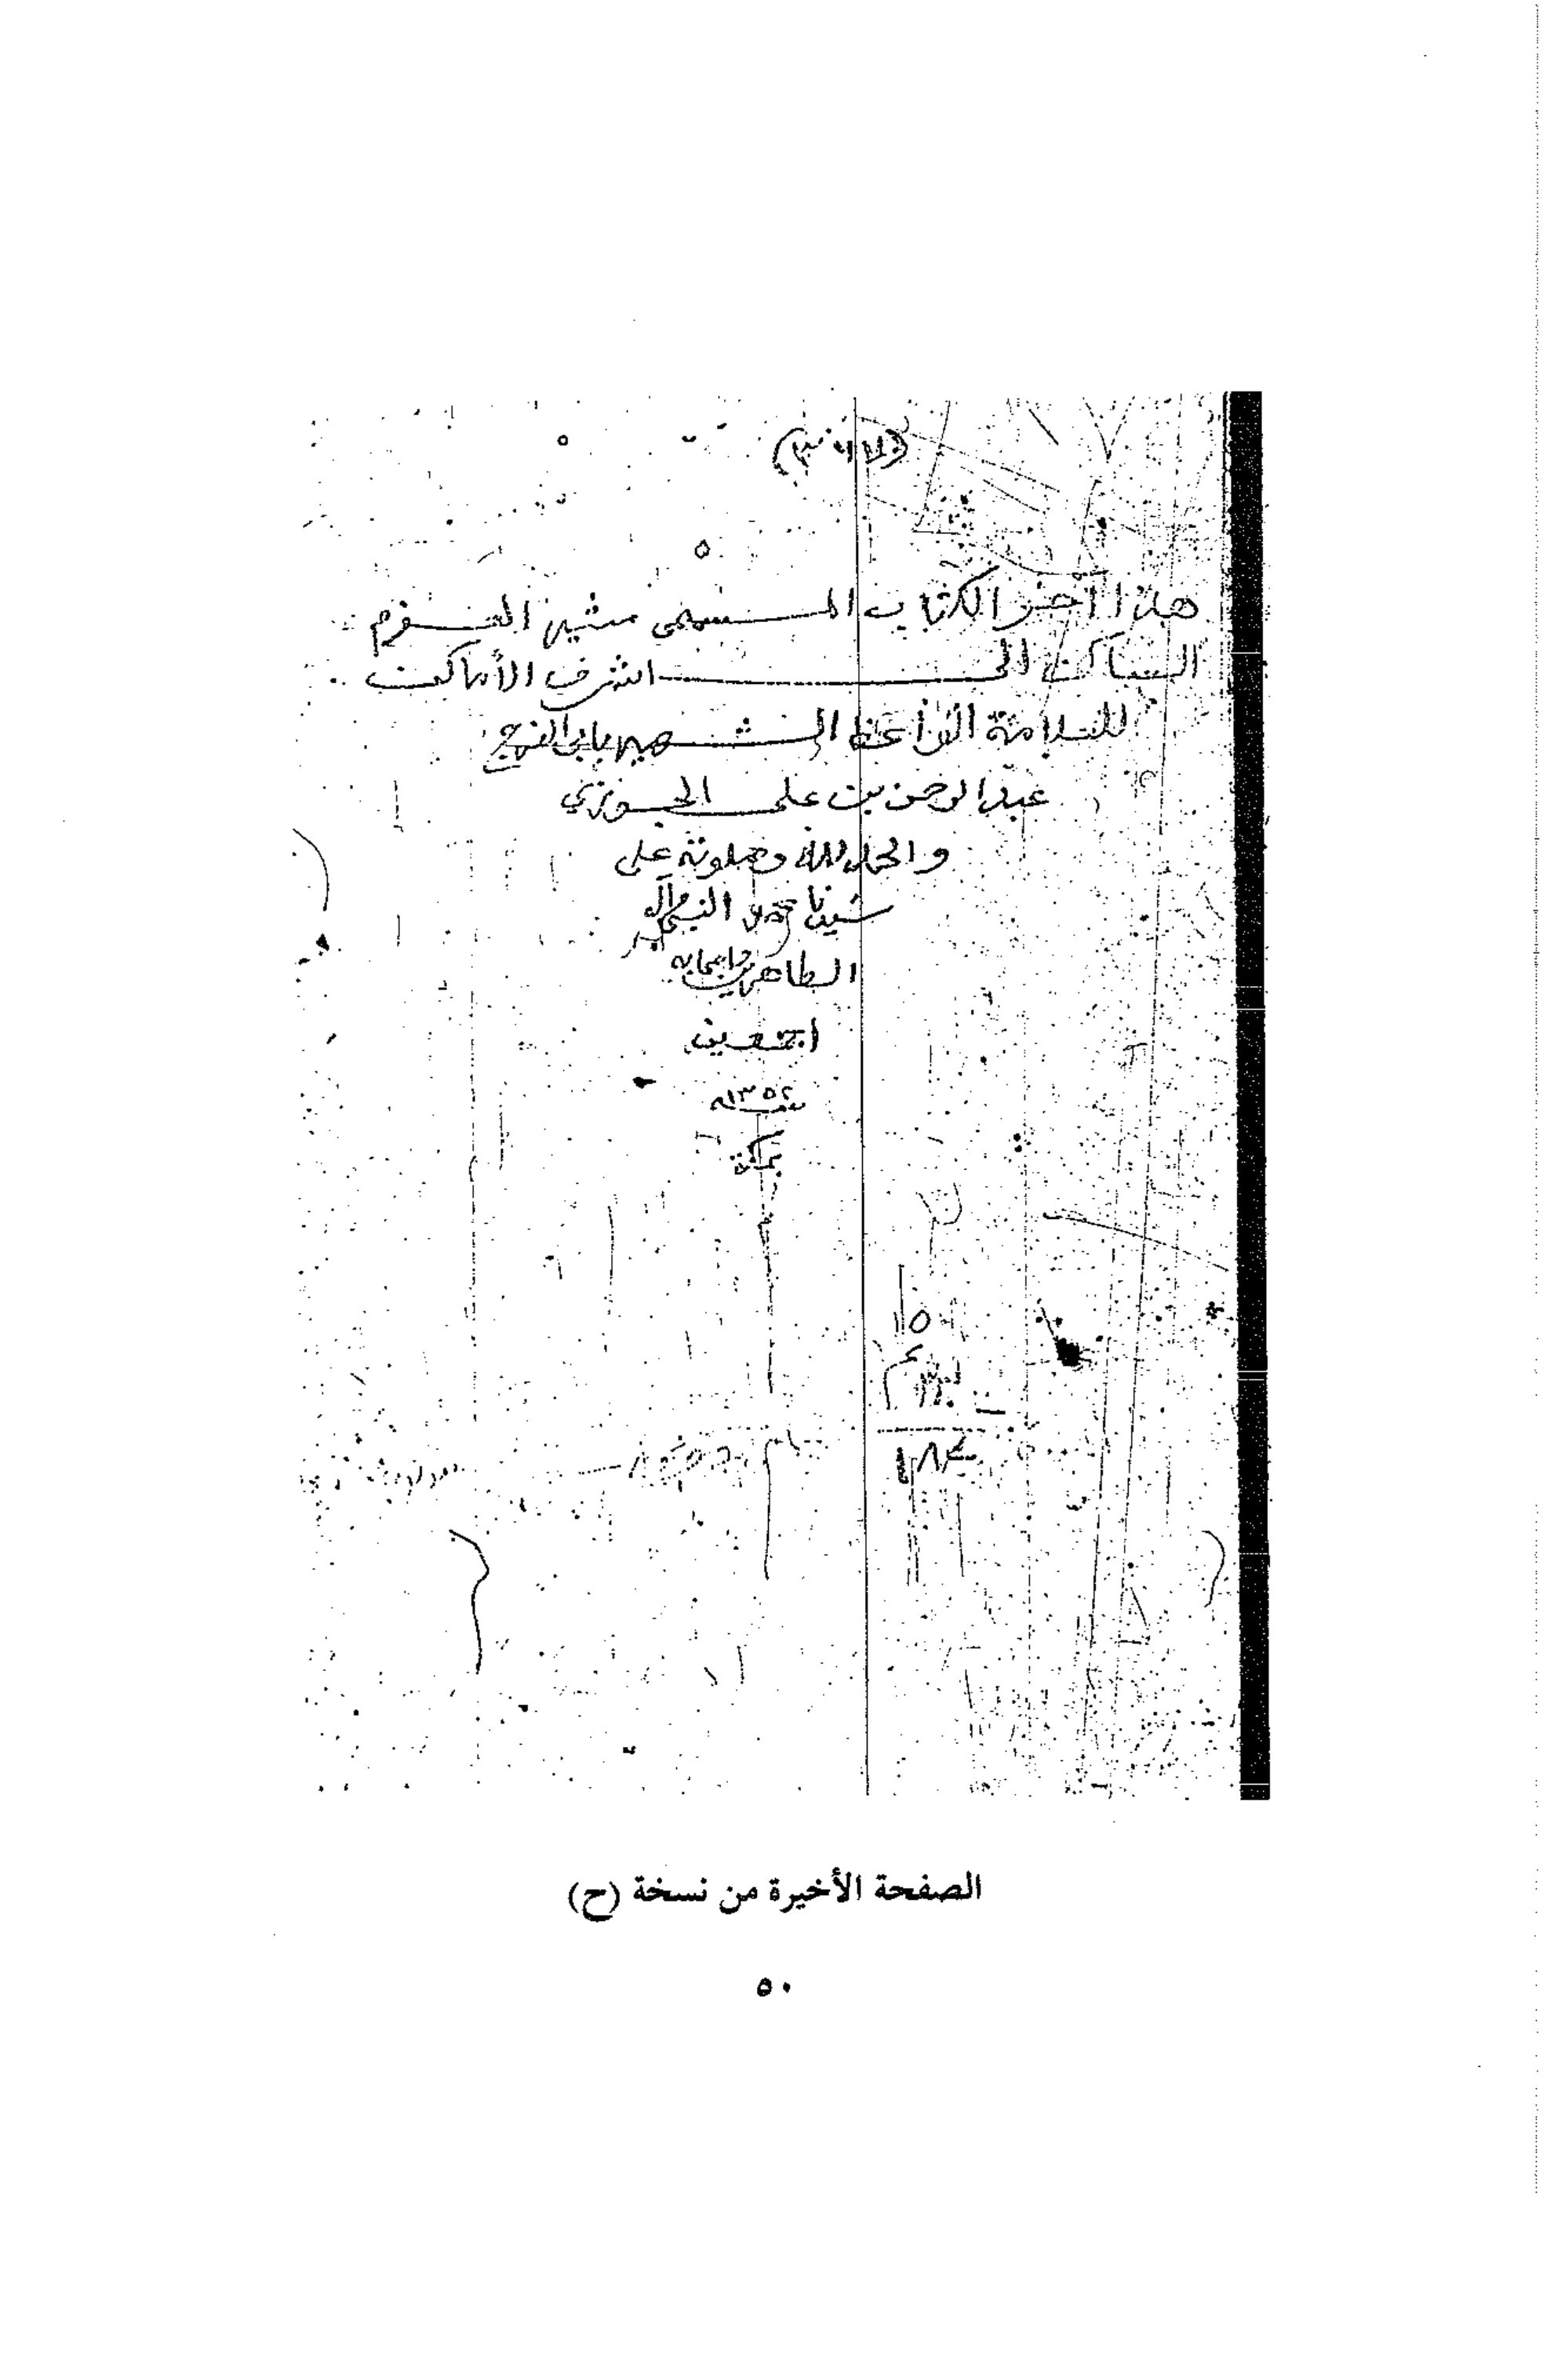 هذا آخر الكتاب المسمى مثير العزم
الساكن الى اشرف الأماكن
للعلامة الواعظ الشهير بابي الفرج
عبد الرحمن بن علي الجوزي
والحمد لله وصلوته على
سيدنا محمد النبي وآله
الطاهرين واصحابه
اجمعين
سنة ١٣٥٢
بمكة
الصفحة الأخيرة من نسخة (ح)
٥٠